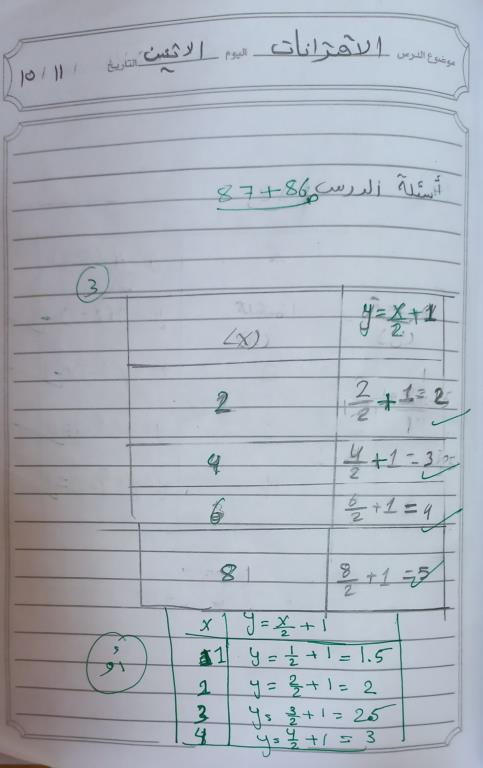 موضوع الدرس الاقترانات اليوم الاثنين التاريخ ١٥ / ١١ /
أسئلة الدرس 86+87
3
(x) y = x/2 + 1
2 2/2 + 1 = 2
4 4/2 + 1 = 3
6 6/2 + 1 = 4
8 8/2 + 1 = 5
أو
x y = x/2 + 1
1 y = 1/2 + 1 = 1.5
2 y = 2/2 + 1 = 2
3 y = 3/2 + 1 = 25
4 y = 4/2 + 1 = 3